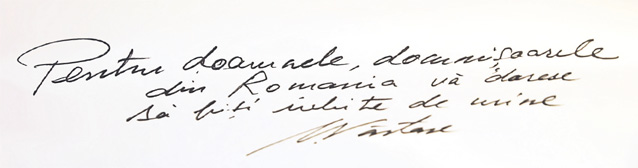 Pentru doamnele, domnișoarele
din Romania vă doresc
să fiți iubite de mine
Năstase